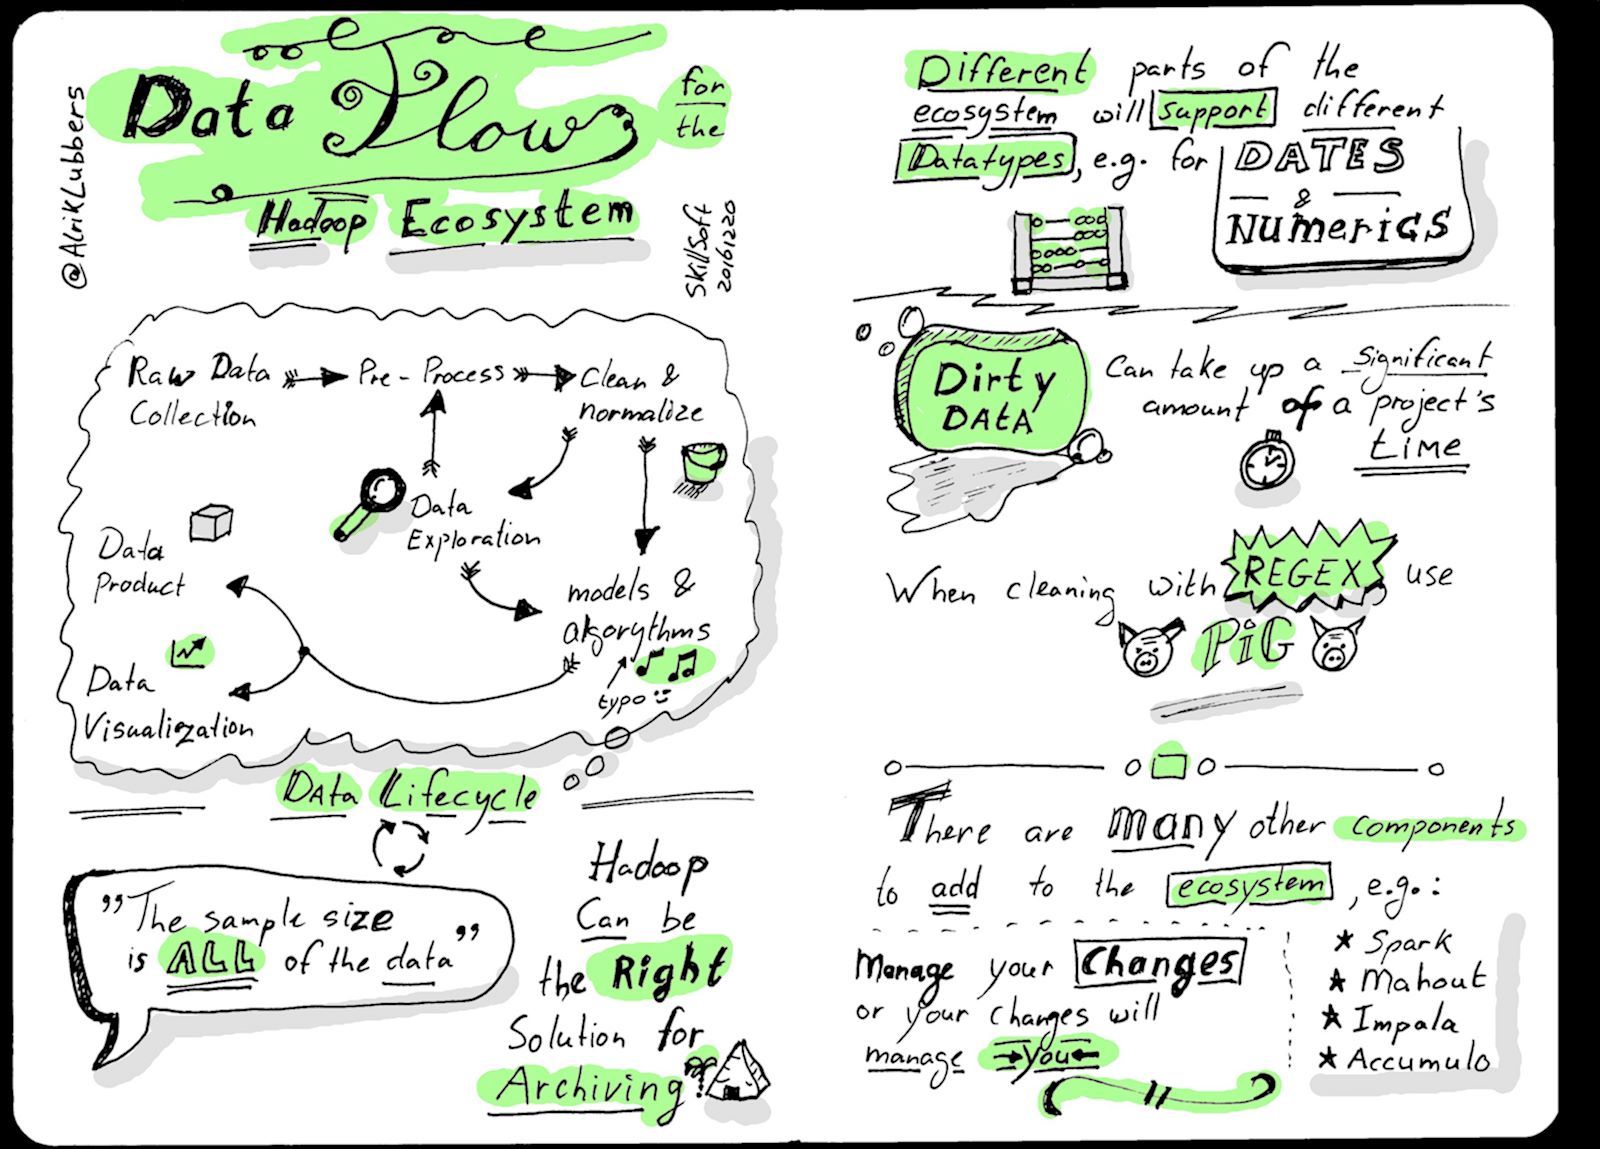 @AlrikLubbers
Data Flow for
the
Hadoop Ecosystem
SkillSoft
20161220
Raw Data
Collection
Pre-Process
Clean &
normalize
Data
Exploration
Data
Product
models &
algorythms
typo
Data
Visualization
Data Lifecycle
"The sample size
is ALL of the data"
Hadoop
Can be
the Right
Solution for
Archiving
Different parts of the
ecosystem will support different
Datatypes, e.g. for
DATES
&
NUMERICS
Dirty
DATA
Can take up a significant
amount of a project's
time
When cleaning with REGEX use
PiG
There are many other components
to add to the ecosystem, e.g.:
Manage your Changes
or your changes will
manage →you←
★ Spark
★ Mahout
★ Impala
★ Accumulo